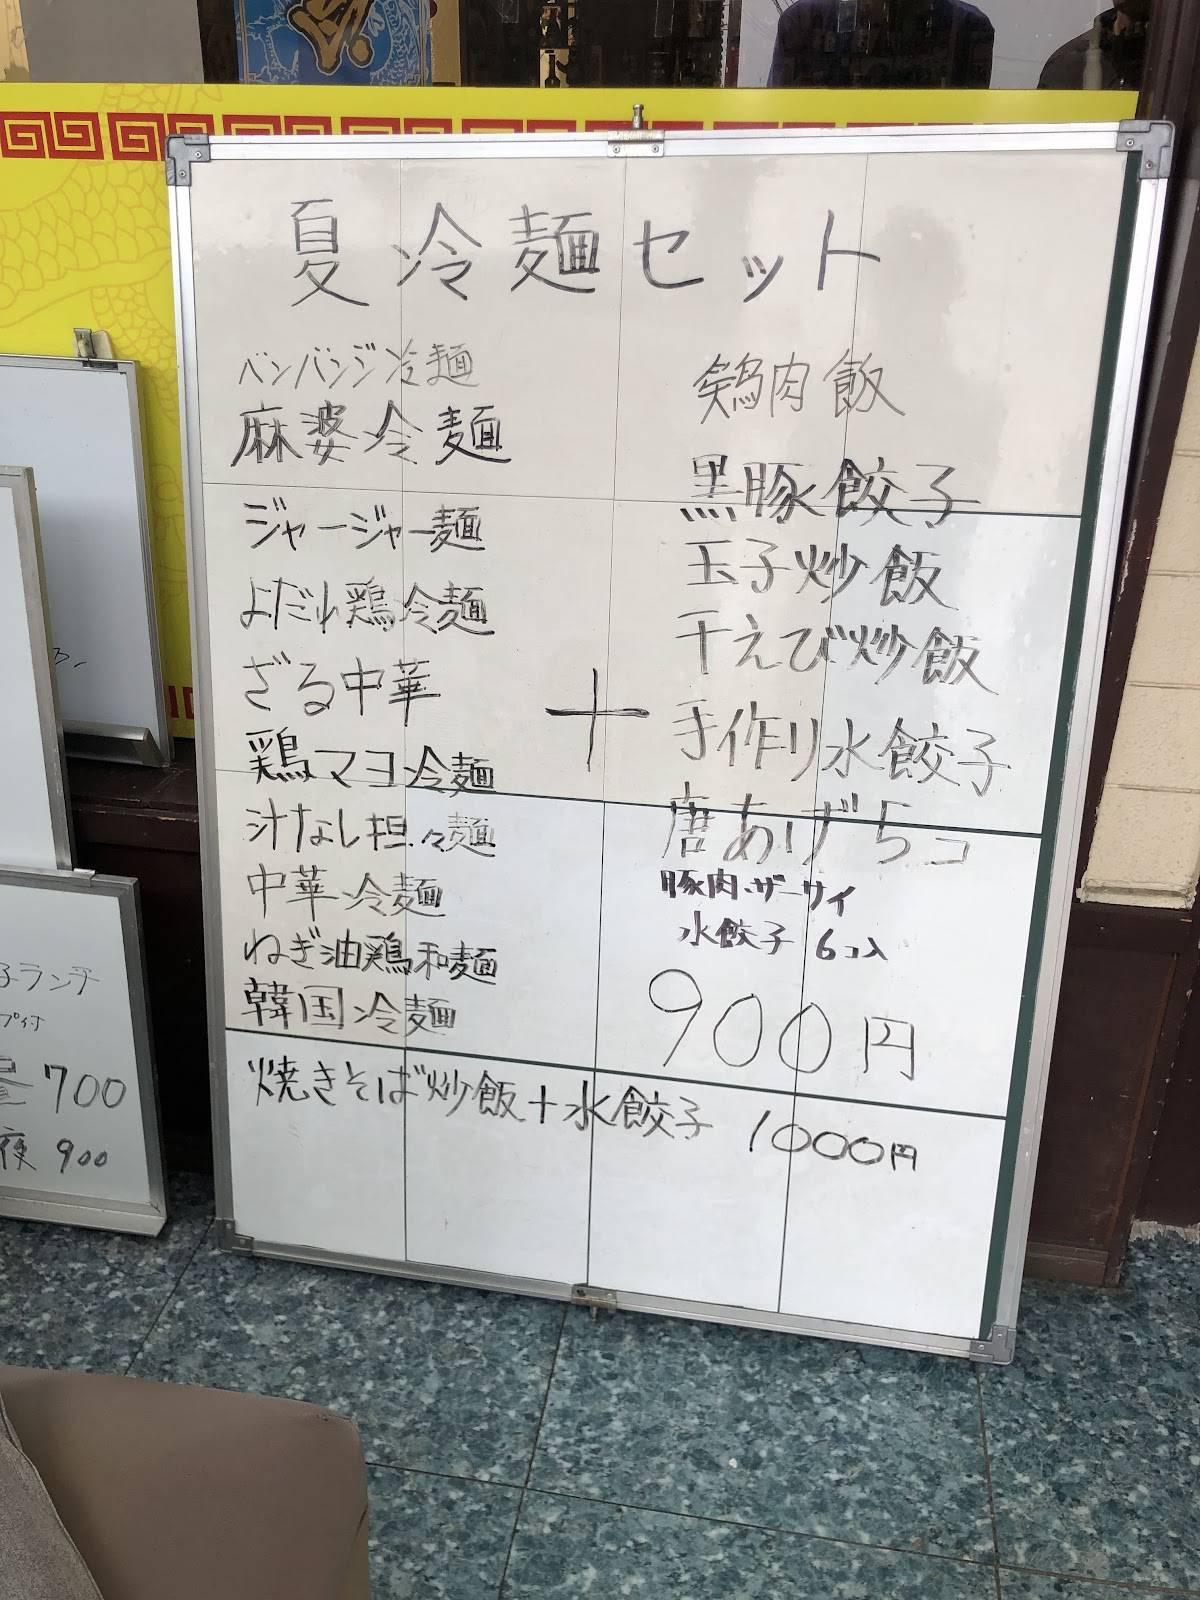 夏冷麺セット
バンバンジ冷麺
麻婆冷麺
ジャージャー麺
よだれ鶏冷麺
ざる中華
鶏マヨ冷麺
汁なし担々麺
中華冷麺
ねぎ油鶏和麺
韓国冷麺
+
鶏肉飯
黒豚餃子
玉子炒飯
干えび炒飯
手作り水餃子
唐あげ5コ
豚肉・ザーサイ
水餃子 6コ入
900円
焼きそば炒飯+水餃子 1000円
ランチ
プ付
昼 700
夜 900